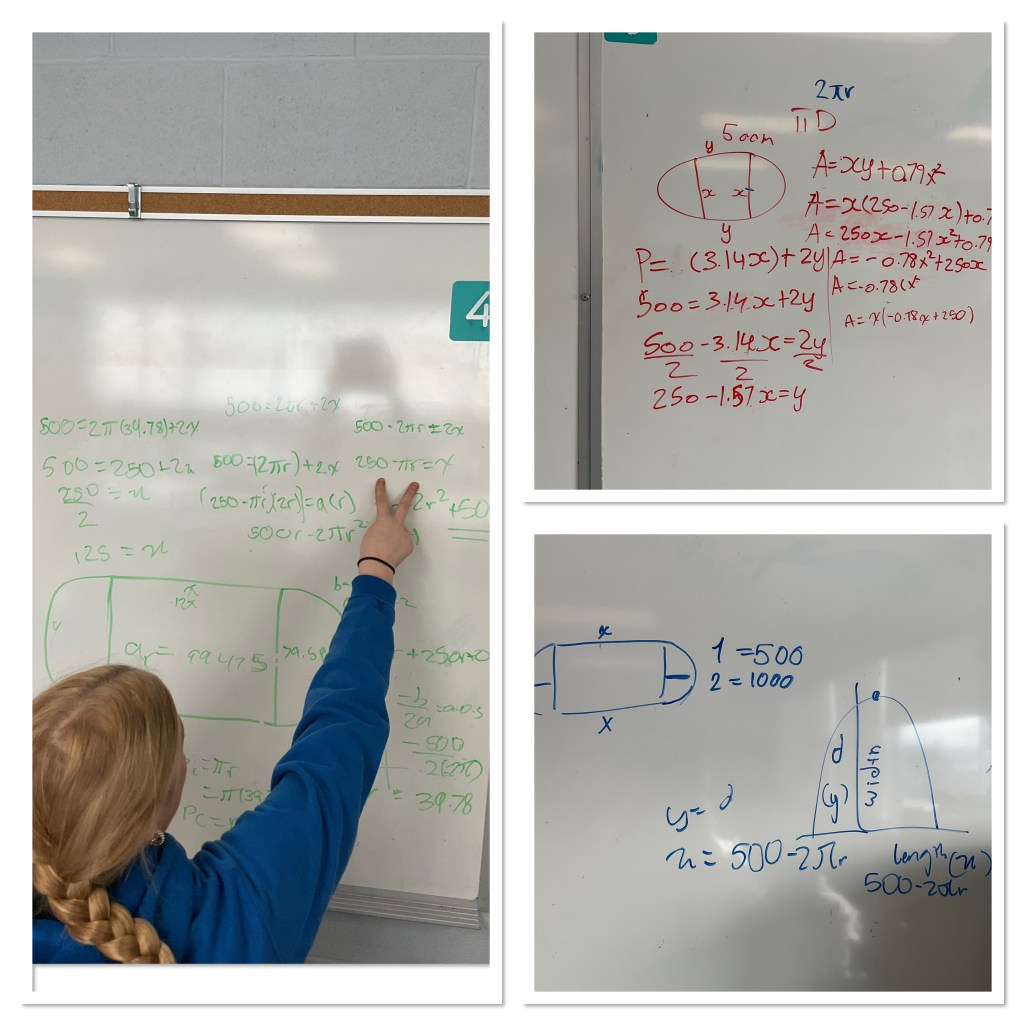 4
500=2πr+2x
500=2π(39.78)+2x
500-2πr=2x
500=250+2x
500=(2πr)+2x
250-πr=x
250 = x
2
(250-πr)(2r)=a(r)
2r²+50
500r-2πr²
125 = x
x
12x
99475
79.58
+250r+0
-b
2a
-500
2(2π)
= 39.78
=πr
=π(39
PC=
2πr
πD
500m
y
x x
y
A=xy+0.79x²
A=x(250-1.57x)+0.7
A=250x-1.57x²+0.79
P= (3.14x)+2y
A=-0.78x²+250x
500=3.14x+2y
A=-0.78(x
A=x(-0.78x+250)
500-3.14x=2y
2 2 2
250-1.57x=y
x
1 =500
2 =1000
x
d
(y)
width
y= d
x= 500-2πr
length(x)
500-2πr